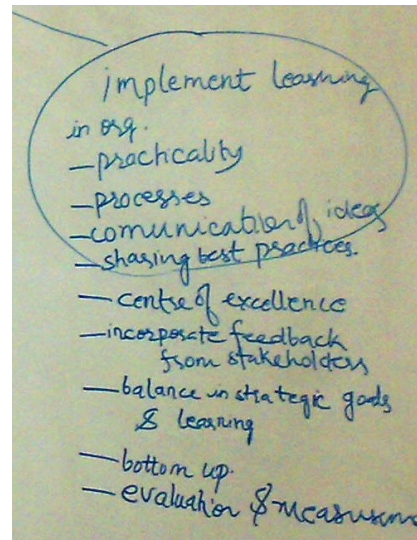 implement learning
in org.
- practicality
- processes
- comunication of ideas
- sharing best practices.
- centre of excellence
- incorporate feedback
from stakeholders
- balance in strategic goals
& learning
- bottom up.
- evaluation &